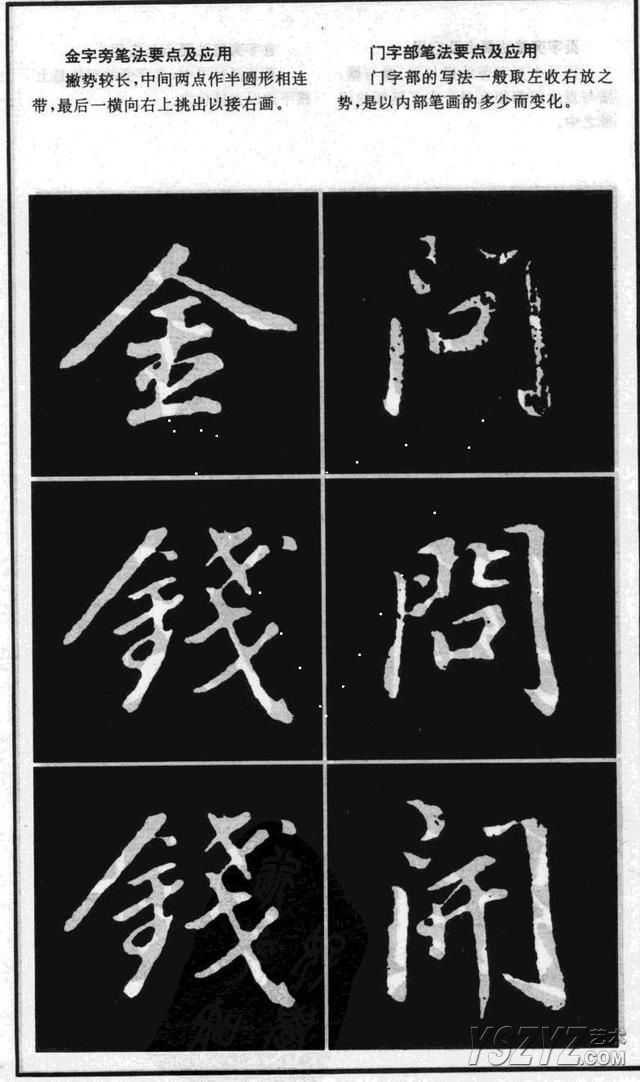 金字旁笔法要点及应用
撇势较长,中间两点作半圆形相连
带,最后一横向右上挑出以接右画。
门字部笔法要点及应用
门字部的写法一般取左收右放之
势,是以内部笔画的多少而变化。
金
问
錢
問
錢
開
YSZYZ艺术
.COM